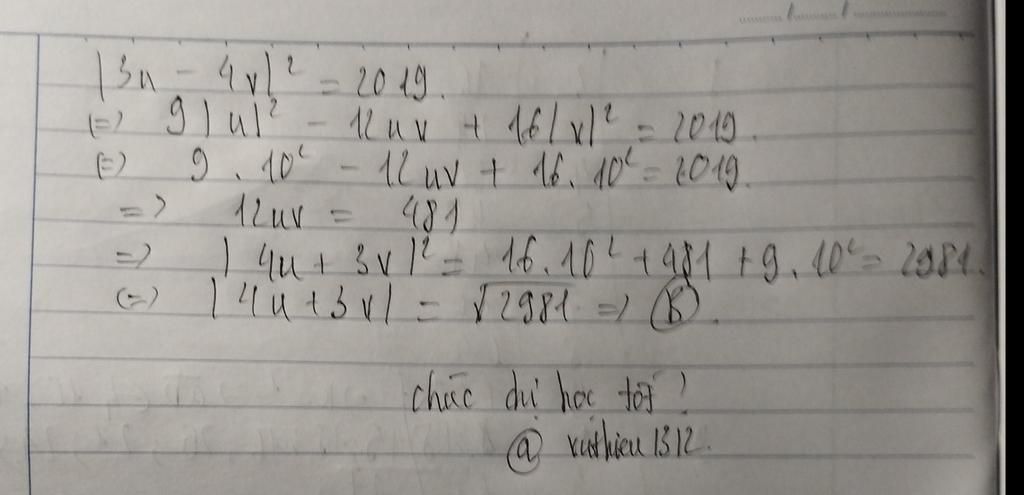 |3u - 4v|² = 2019.
(=) 9|u|² - 12uv + 16|v|² = 2019.
(=) 9 . 10² - 12uv + 16. 10² = 2019.
=> 12uv = 481
=> |4u + 3v|² = 16.10² + 481 + 9. 10² = 2981.
(=) |4u + 3v| = √2981 => (B).
chúc chị học tốt!
@ vuthieu1312.